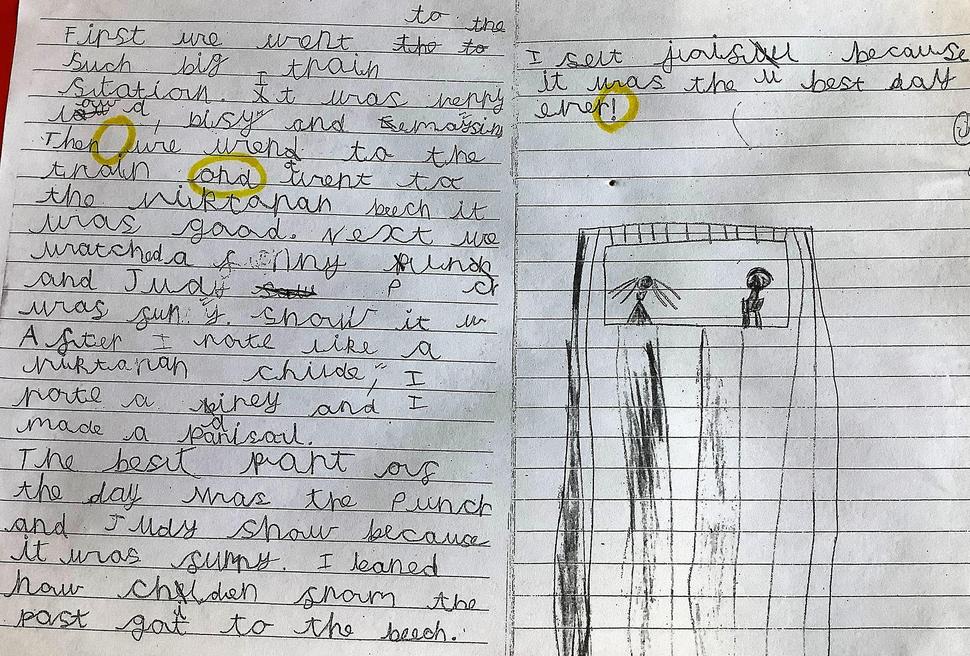 to the
First we went the to
such big train
sitation. It was verry
d, bisy and
Then we wrend to the
train and went to
the viktarian beech it
was good. Next we
watched a funny punch
and Judy saw P
was funy. show it w
After I rote like a
viktarian childe, I
rote a diney and I
made a parisaul.
The besit part of
the day was the Punch
and Judy show because
it was funny. I leaned
how children from the
past got to the beech.
I felt because
it was the best day
ever!